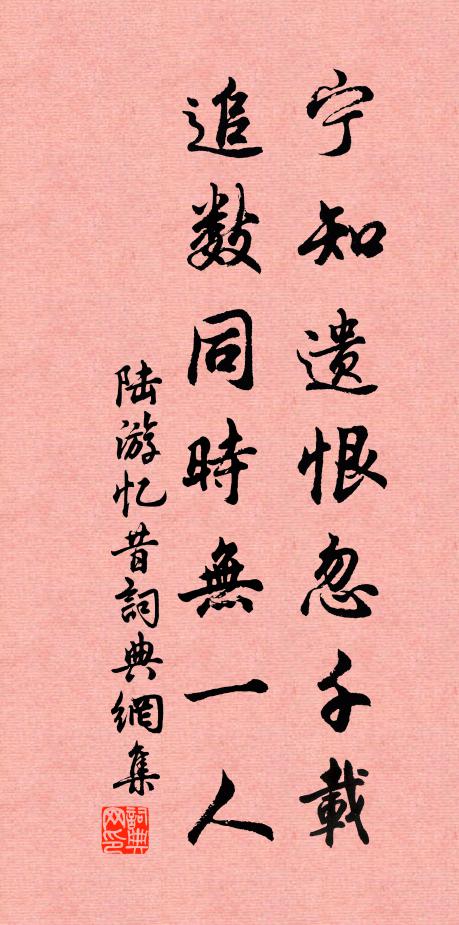 宁知遗恨忽千載
追数同時無一人
陆游忆昔詞典網集
詞典网印